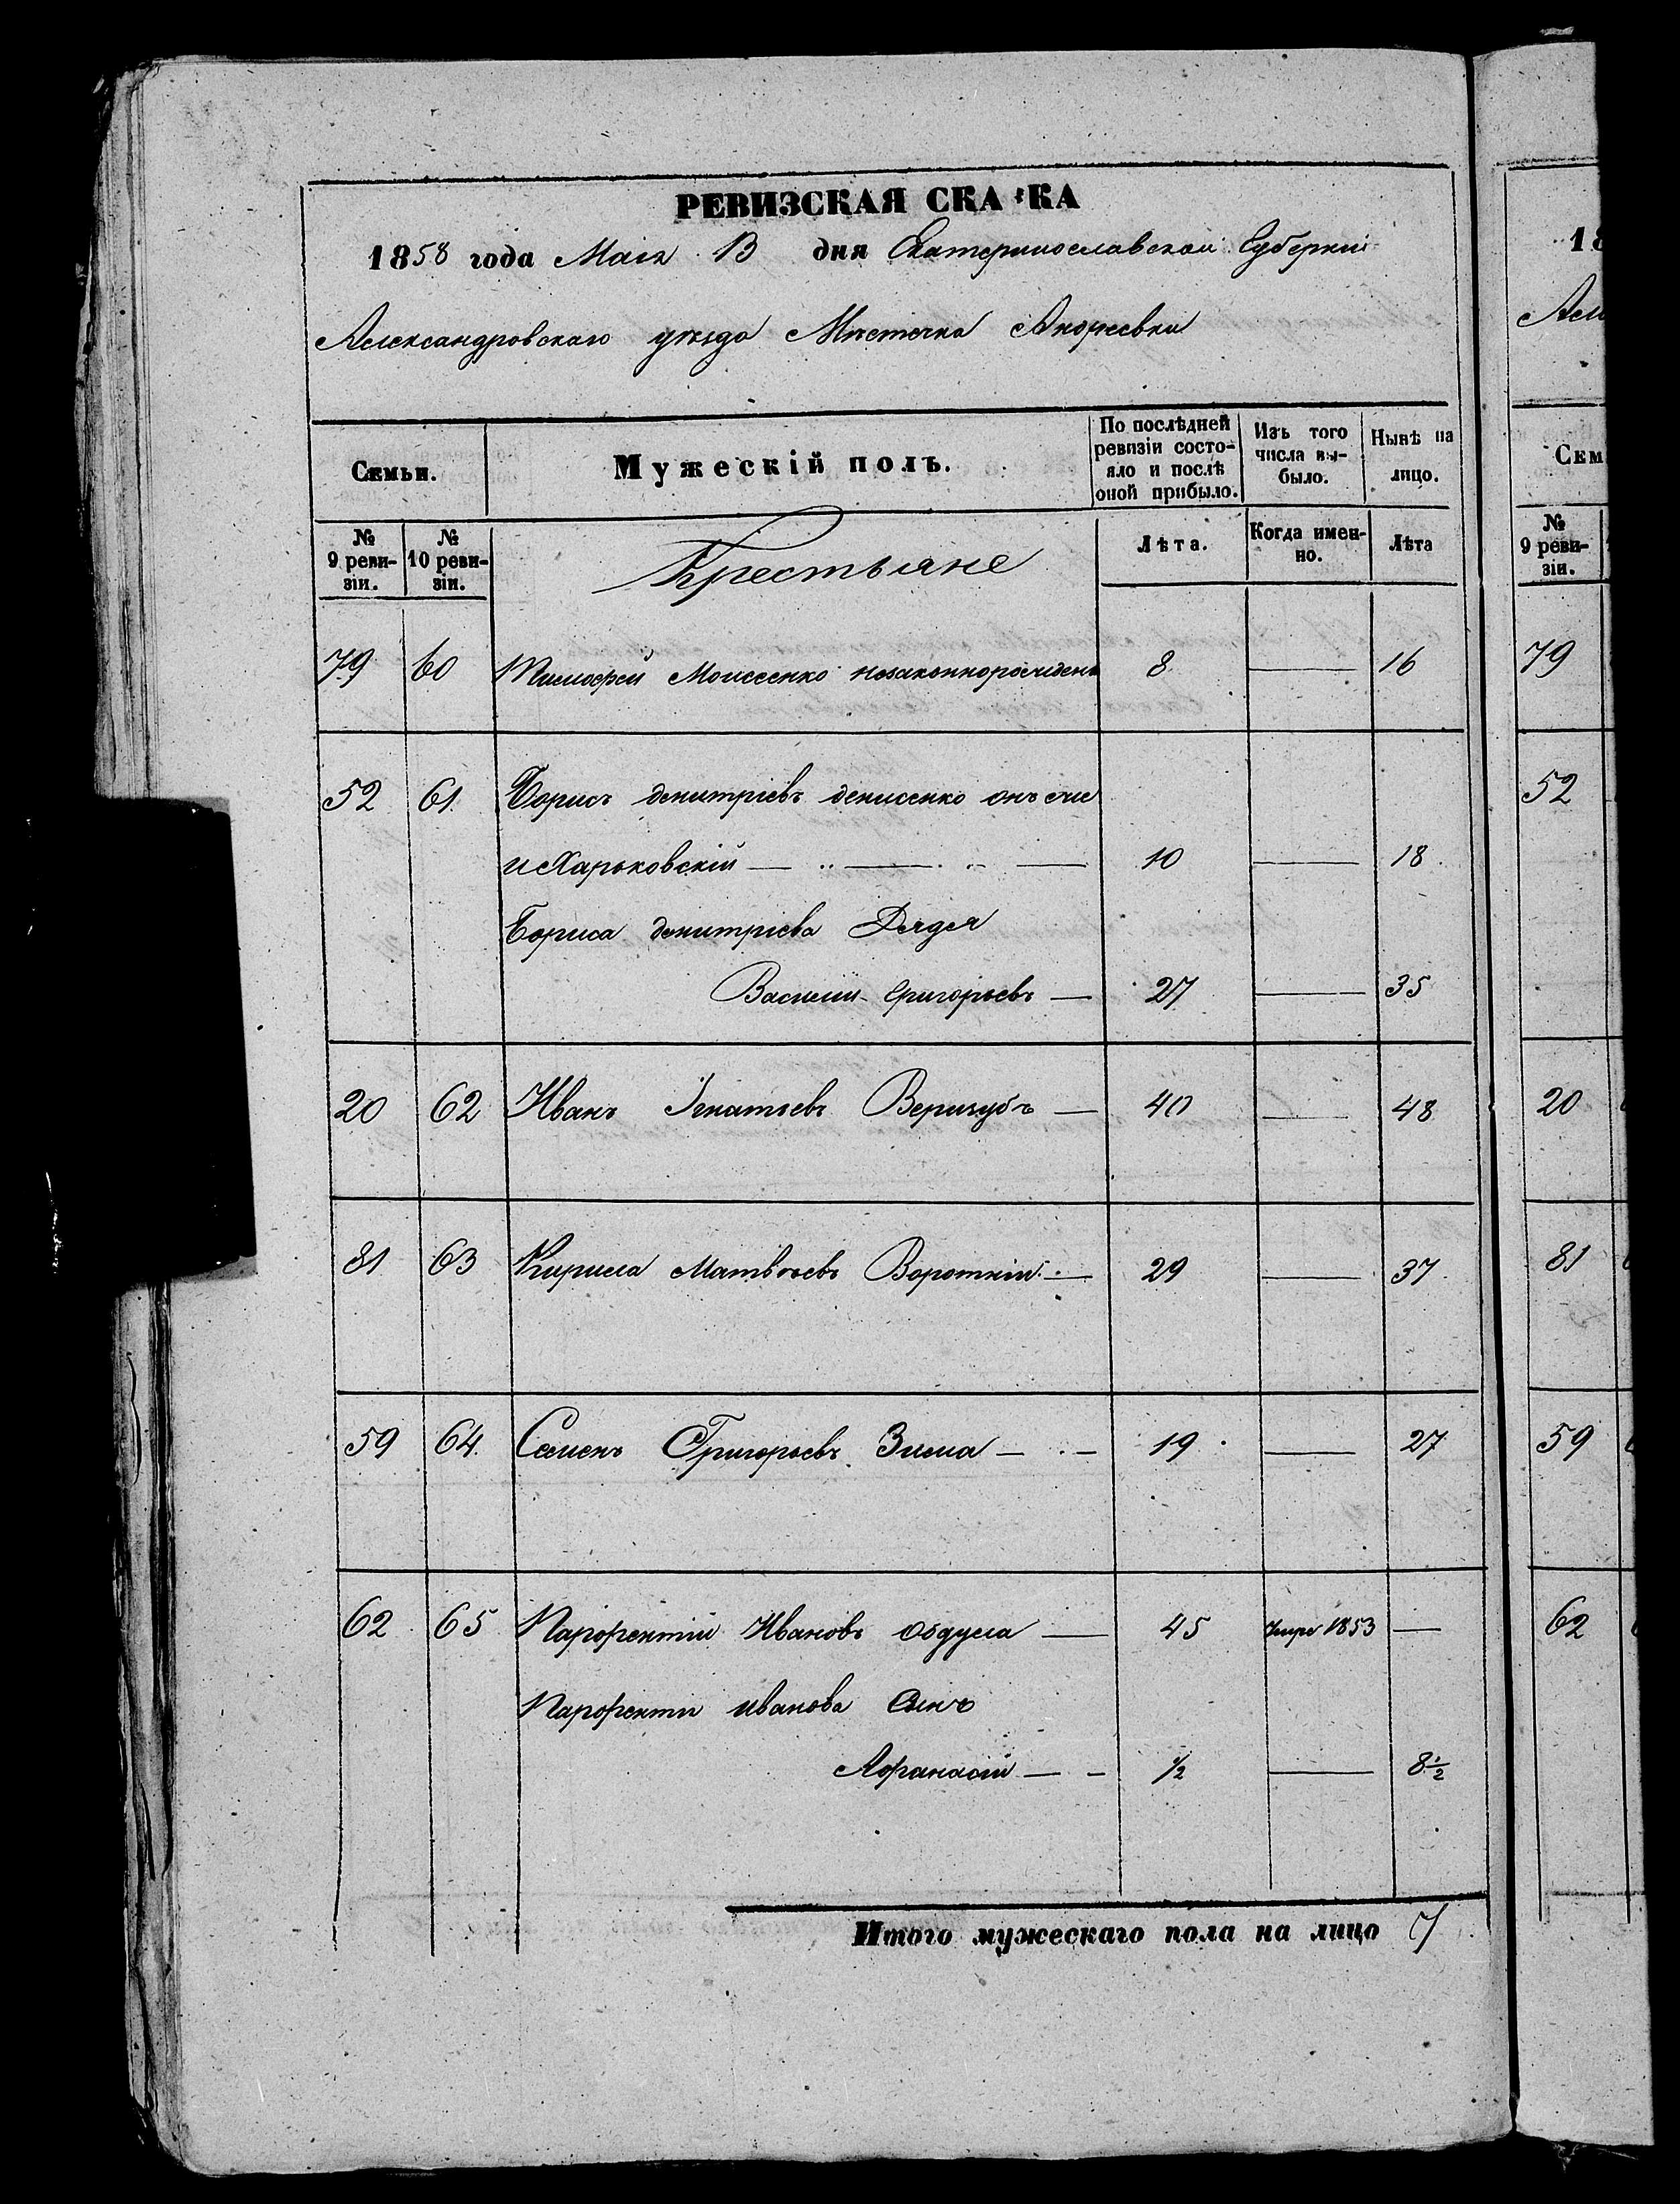 РЕВИЗСКАЯ СКА КА
1858 года Маія 13 дня Екатеринославской Губерніи
Александровскаго уѣзда Мѣстечка Андреевки
Семьи.
Мужескій полъ.
По послѣдней ревизіи состояло и послѣ оной прибыло.
Изъ того числа выбыло.
Нынѣ на лицо.
№ 9 ревизіи.
№ 10 ревизіи.
Крестьяне
Лѣта.
Когда именно.
Лѣта
79 60 Тимофей Моисеенко незаконнорожденъ 8 — 16
52 61. Борисъ димитріевъ денисенко онъ же
и Харьковскій — 10 — 18
Бориса димитріева Дядя
Василій григорьевъ — 27 — 35
20 62 Иванъ Игнатьевъ Веризубъ — 40 — 48
81 63 Кирила Матвѣевъ Вороткій — 29 — 37
59 64. Семенъ Григорьевъ Зима — 19 — 27
62 65 Парфентій Ивановъ Обдула — 45 умре 1853 —
Парфентія иванова Сынъ
Афанасій — 1/2 — 8 1/2
Итого мужескаго пола на лицо 7
18
Сем
№ 9 ревизіи.
79
52
20
81
59
62